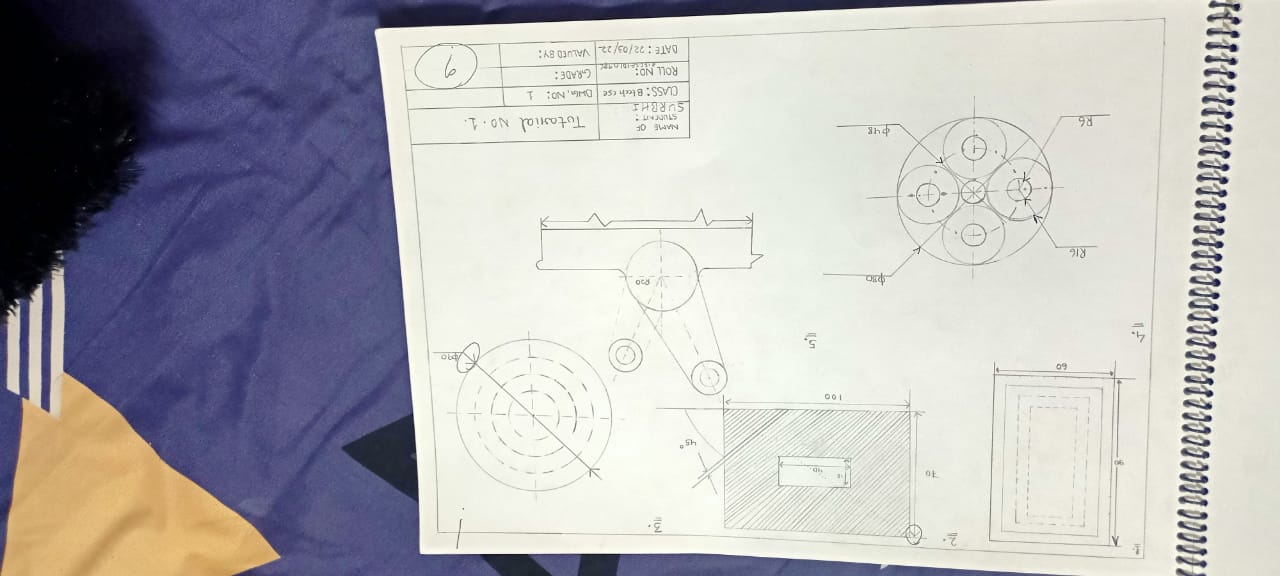 1.
90
60
2.
70
10
40
45°
100
3.
φ90
4.
R16
φ80
R6
φ48
5.
R20
NAME OF
STUDENT:
SURBHI
Tutorial NO. 1.
CLASS: Btech cse
DWG, NO: 1
ROLL NO:
GRADE:
DATE: 22/03/22
VALUED BY:
9